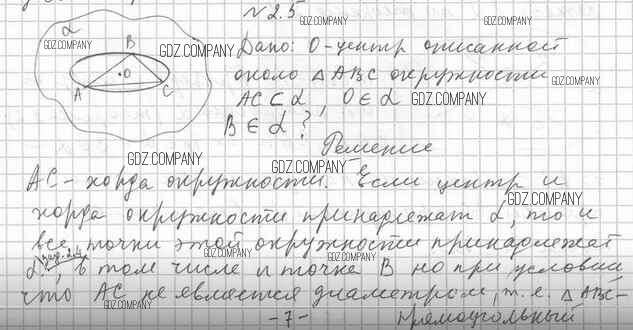 N 2.5
GDZ.COMPANY GDZ.COMPANY
α
GDZ.COMPANY
B
GDZ.COMPANY
O
A
C
Дано: O - центр описанной
около △ ABC окружности
GDZ.COMPANY
AC ⊂ α, O ∈ α GDZ.COMPANY
B ∈ α ?
Решение
GDZ.COMPANY
GDZ.COMPANY
AC - хорда окружности. Если центр и
GDZ.COMPANY
хорда окружности принадлежат α, то и
все точки этой окружности принадлежат
GDZ.COMPANY GDZ.COMPANY
зад. 2.4
α, в том числе и точка B но при условии
что AC не является диаметром, т.е. △ ABC -
GDZ.COMPANY
- 7 -
прямоугольный